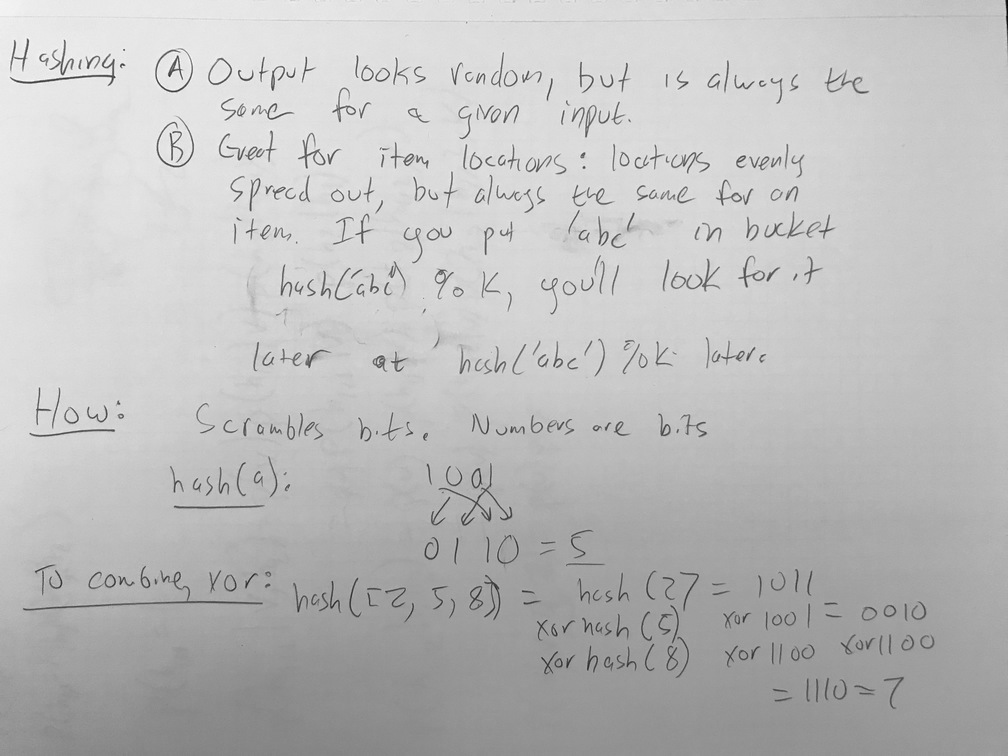 Hashing: Ⓐ Output looks random, but is always the
same for a given input.
Ⓑ Great for item locations: locations evenly
spread out, but always the same for an
item. If you put 'abc' in bucket
hash('abc') % K, you'll look for it
later at hash('abc') % K later.
How: Scrambles bits. Numbers are bits
hash(a): 1001
0110 = 5
To combine, xor: hash([2, 5, 8]) = hash(2) = 1011
xor hash(5) xor 1001 = 0010
xor hash(8) xor 1100 xor 1100
= 1110 = 7